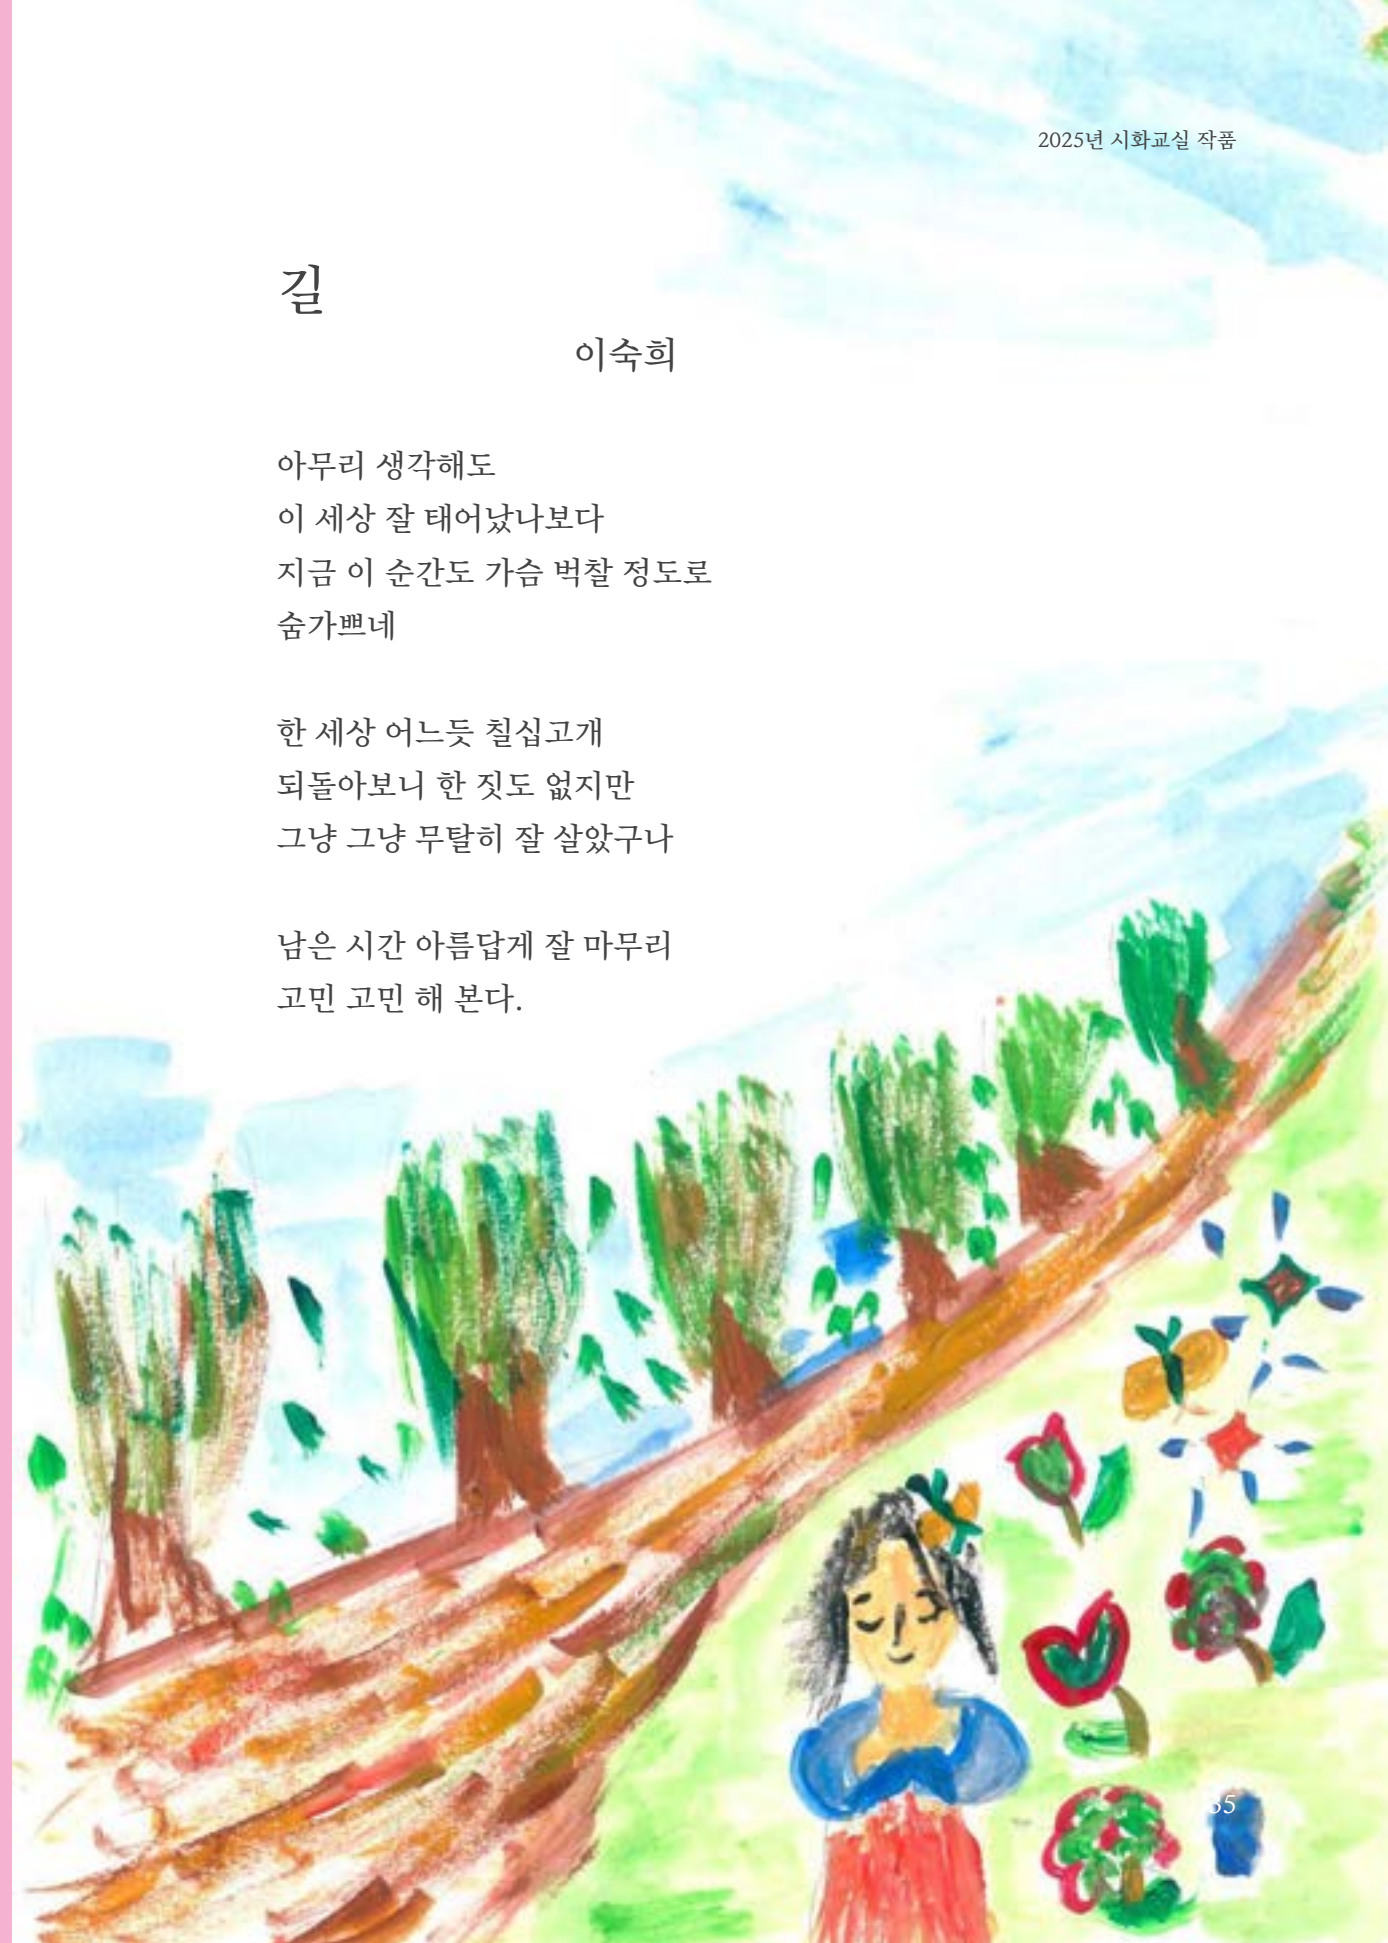 2025년 시화교실 작품
길
이숙희
아무리 생각해도
이 세상 잘 태어났나보다
지금 이 순간도 가슴 벅찰 정도로
숨가쁘네
한 세상 어느듯 칠십고개
되돌아보니 한 짓도 없지만
그냥 그냥 무탈히 잘 살았구나
남은 시간 아름답게 잘 마무리
고민 고민 해 본다.